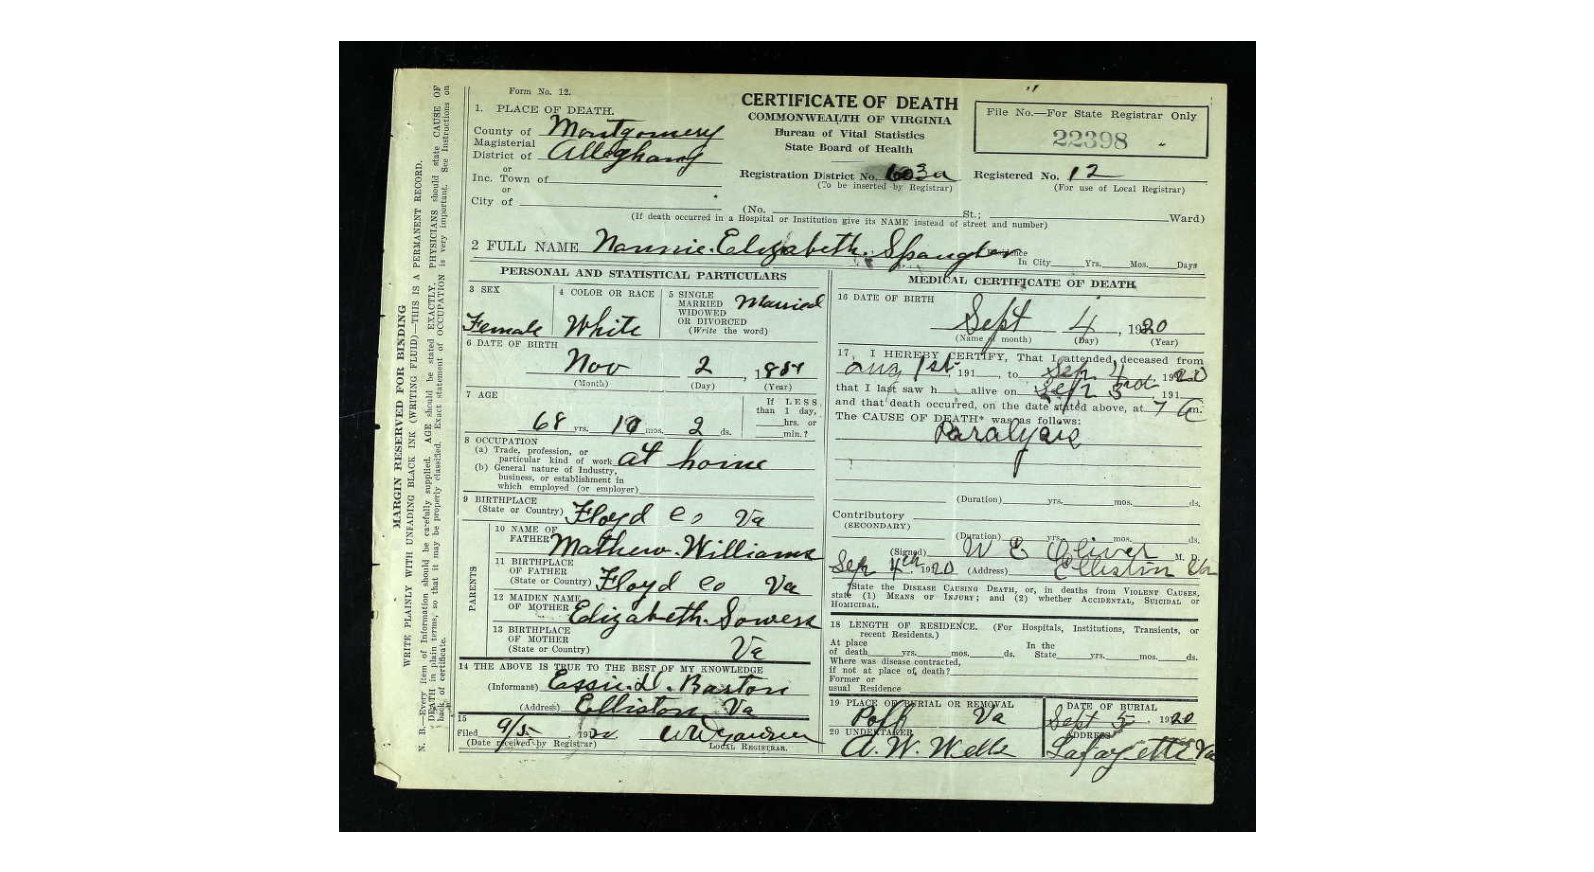 Form No. 12.
1. PLACE OF DEATH.
County of Montgomery
Magisterial
District of Alleghany
or
Inc. Town of
or
City of
CERTIFICATE OF DEATH
COMMONWEALTH OF VIRGINIA
Bureau of Vital Statistics
State Board of Health
Registration District No. 603a
(To be inserted by Registrar)
File No.—For State Registrar Only
22398
Registered No. 12
(For use of Local Registrar)
(No. St.; Ward)
(If death occurred in a Hospital or Institution give its NAME instead of street and number)
2 FULL NAME Nannie Elizabeth Spangler
In City Yrs. Mos. Days
PERSONAL AND STATISTICAL PARTICULARS
3 SEX
Female
4 COLOR OR RACE
White
5 SINGLE
MARRIED
WIDOWED
OR DIVORCED
(Write the word)
Married
6 DATE OF BIRTH
Nov 2, 1851
(Month) (Day) (Year)
7 AGE
68 yrs. 10 mos. 2 ds.
If LESS
than 1 day,
hrs. or
min.?
8 OCCUPATION
(a) Trade, profession, or
particular kind of work at home
(b) General nature of Industry,
business, or establishment in
which employed (or employer)
9 BIRTHPLACE
(State or Country) Floyd Co Va
PARENTS
10 NAME OF
FATHER Mathew Williams
11 BIRTHPLACE
OF FATHER
(State or Country) Floyd Co Va
12 MAIDEN NAME
OF MOTHER Elizabeth Sowers
13 BIRTHPLACE
OF MOTHER
(State or Country) Va
14 THE ABOVE IS TRUE TO THE BEST OF MY KNOWLEDGE
(Informant) Essie D. Barton
(Address) Elliston Va
15
Filed 9/5, 1920
(Date received by Registrar) LOCAL REGISTRAR.
MEDICAL CERTIFICATE OF DEATH
16 DATE OF BIRTH
Sept 4, 1920
(Name of month) (Day) (Year)
17 I HEREBY CERTIFY, That I attended deceased from
Aug 1st, 191 , to Sep 4 1920
that I last saw h alive on Sep 3rd 191
and that death occurred, on the date stated above, at 7 A m.
The CAUSE OF DEATH* was as follows:
Paralysis
(Duration) yrs. mos. ds.
Contributory
(SECONDARY)
(Duration) yrs. mos. ds.
(Signed) W E Oliver M. D.
Sep 4th, 1920 (Address) Elliston Va
*State the DISEASE CAUSING DEATH, or, in deaths from VIOLENT CAUSES,
state (1) MEANS OF INJURY; and (2) whether ACCIDENTAL, SUICIDAL or
HOMICIDAL.
18 LENGTH OF RESIDENCE. (For Hospitals, Institutions, Transients, or
recent Residents.)
At place In the
of death yrs. mos. ds. State yrs. mos. ds.
Where was disease contracted,
if not at place of death?
Former or
usual Residence
19 PLACE OF BURIAL OR REMOVAL
Poff Va
DATE OF BURIAL
Sept 5 1920
20 UNDERTAKER
A. W. Wells
ADDRESS
Lafayette Va
MARGIN RESERVED FOR BINDING
WRITE PLAINLY WITH UNFADING BLACK INK (WRITING FLUID)—THIS IS A PERMANENT RECORD.
N. B.—Every item of Information should be carefully supplied. AGE should be stated EXACTLY. PHYSICIANS should state CAUSE OF
DEATH in plain terms, so that it may be properly classified. Exact statement of OCCUPATION is very important. See Instructions on
back of certificate.